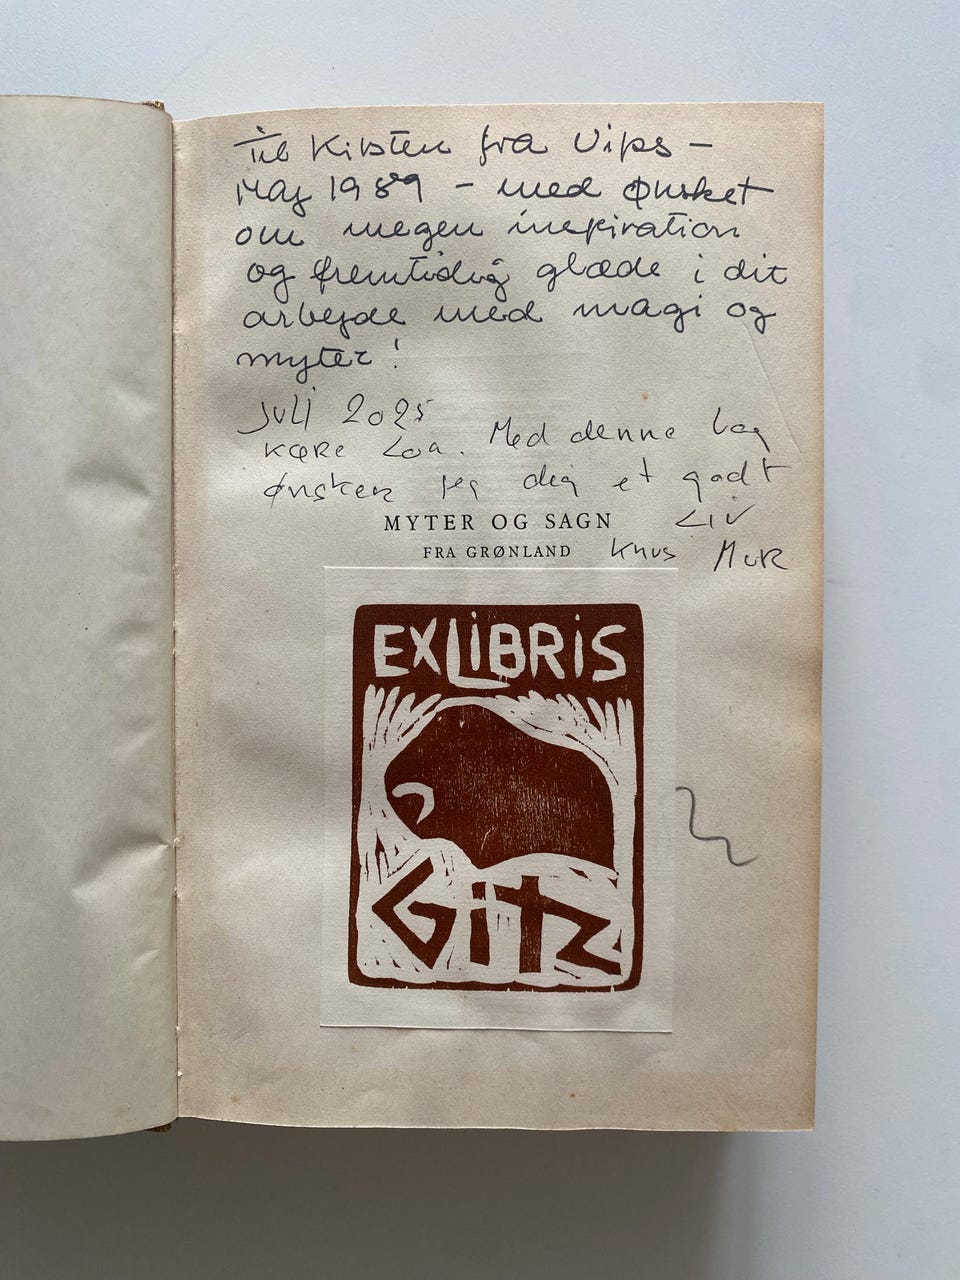 Til Kirsten fra Vips –
Maj 1989 – med ønsket
om megen inspiration
og fremtidig glæde i dit
arbejde med magi og
myter!
Juli 2025
Kære Loa. Med denne bog
ønsker jeg dig et godt
Liv
MYTER OG SAGN
FRA GRØNLAND
Knus MOR
EXLIBRIS
GITZ